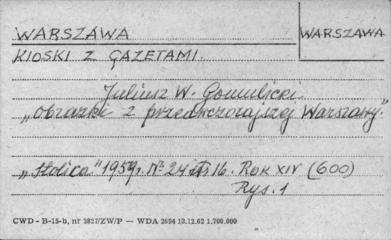 WARSZAWA
WARSZAWA
KIOSKI Z GAZETAMI.
Juliusz W. Gomulicki
„Obrazki z przedwczorajszej Warszawy."
„Stolica" 1959r. nr 24 str 16. ROK XIV (600)
Rys. 1
CWD - B-15-b, nr 2827/ZW/P — WDA 2694 13.12.62 1.700.000